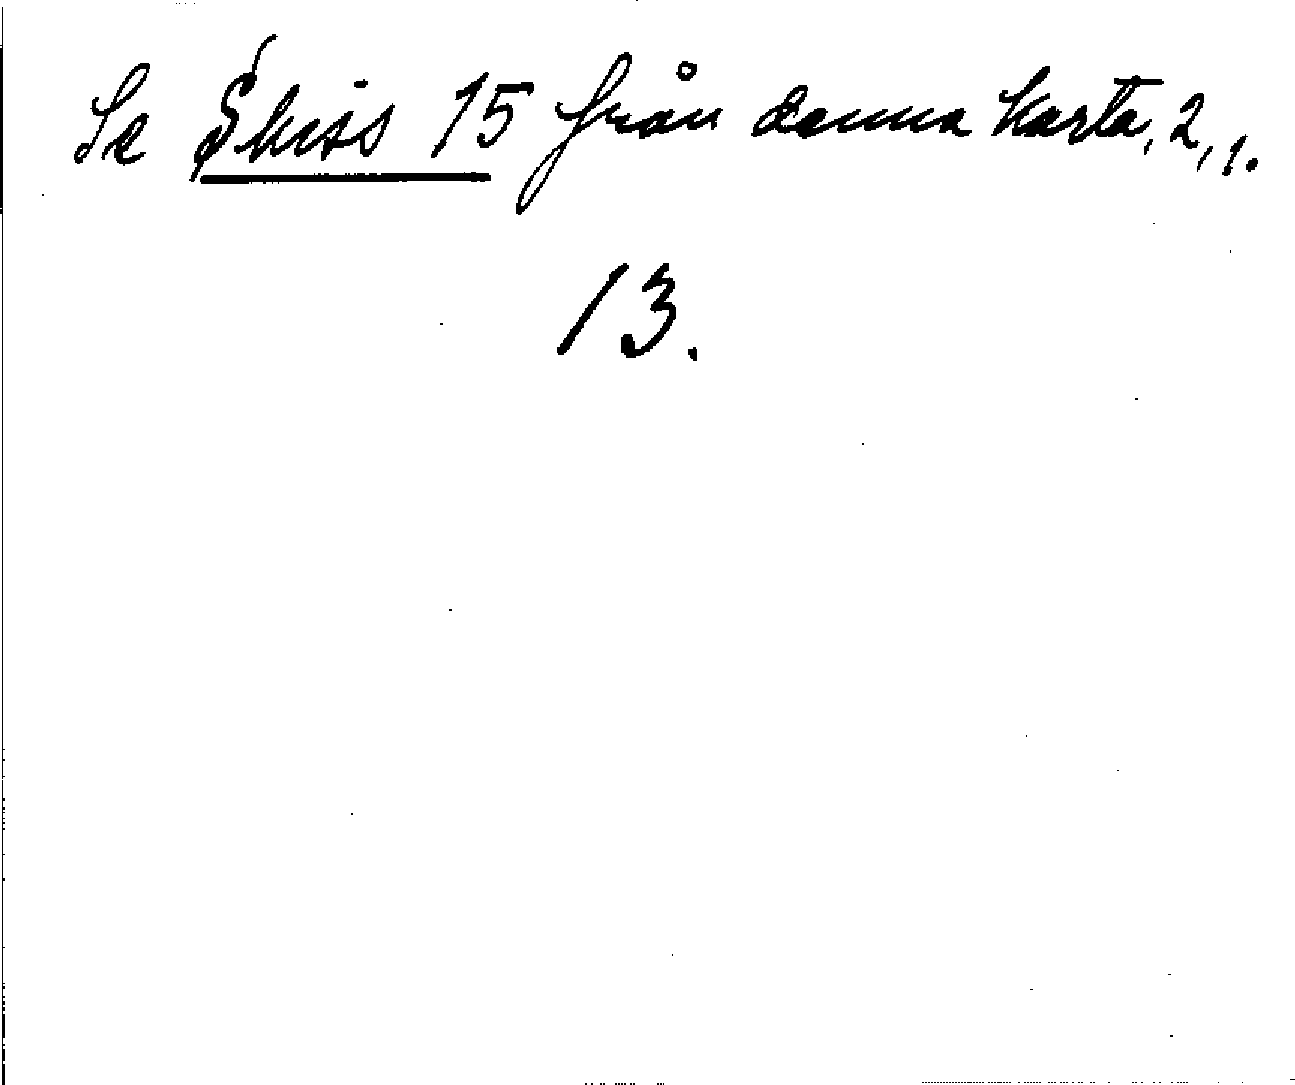 Se Skiss 15 från denna karta, 2, 1.
13.